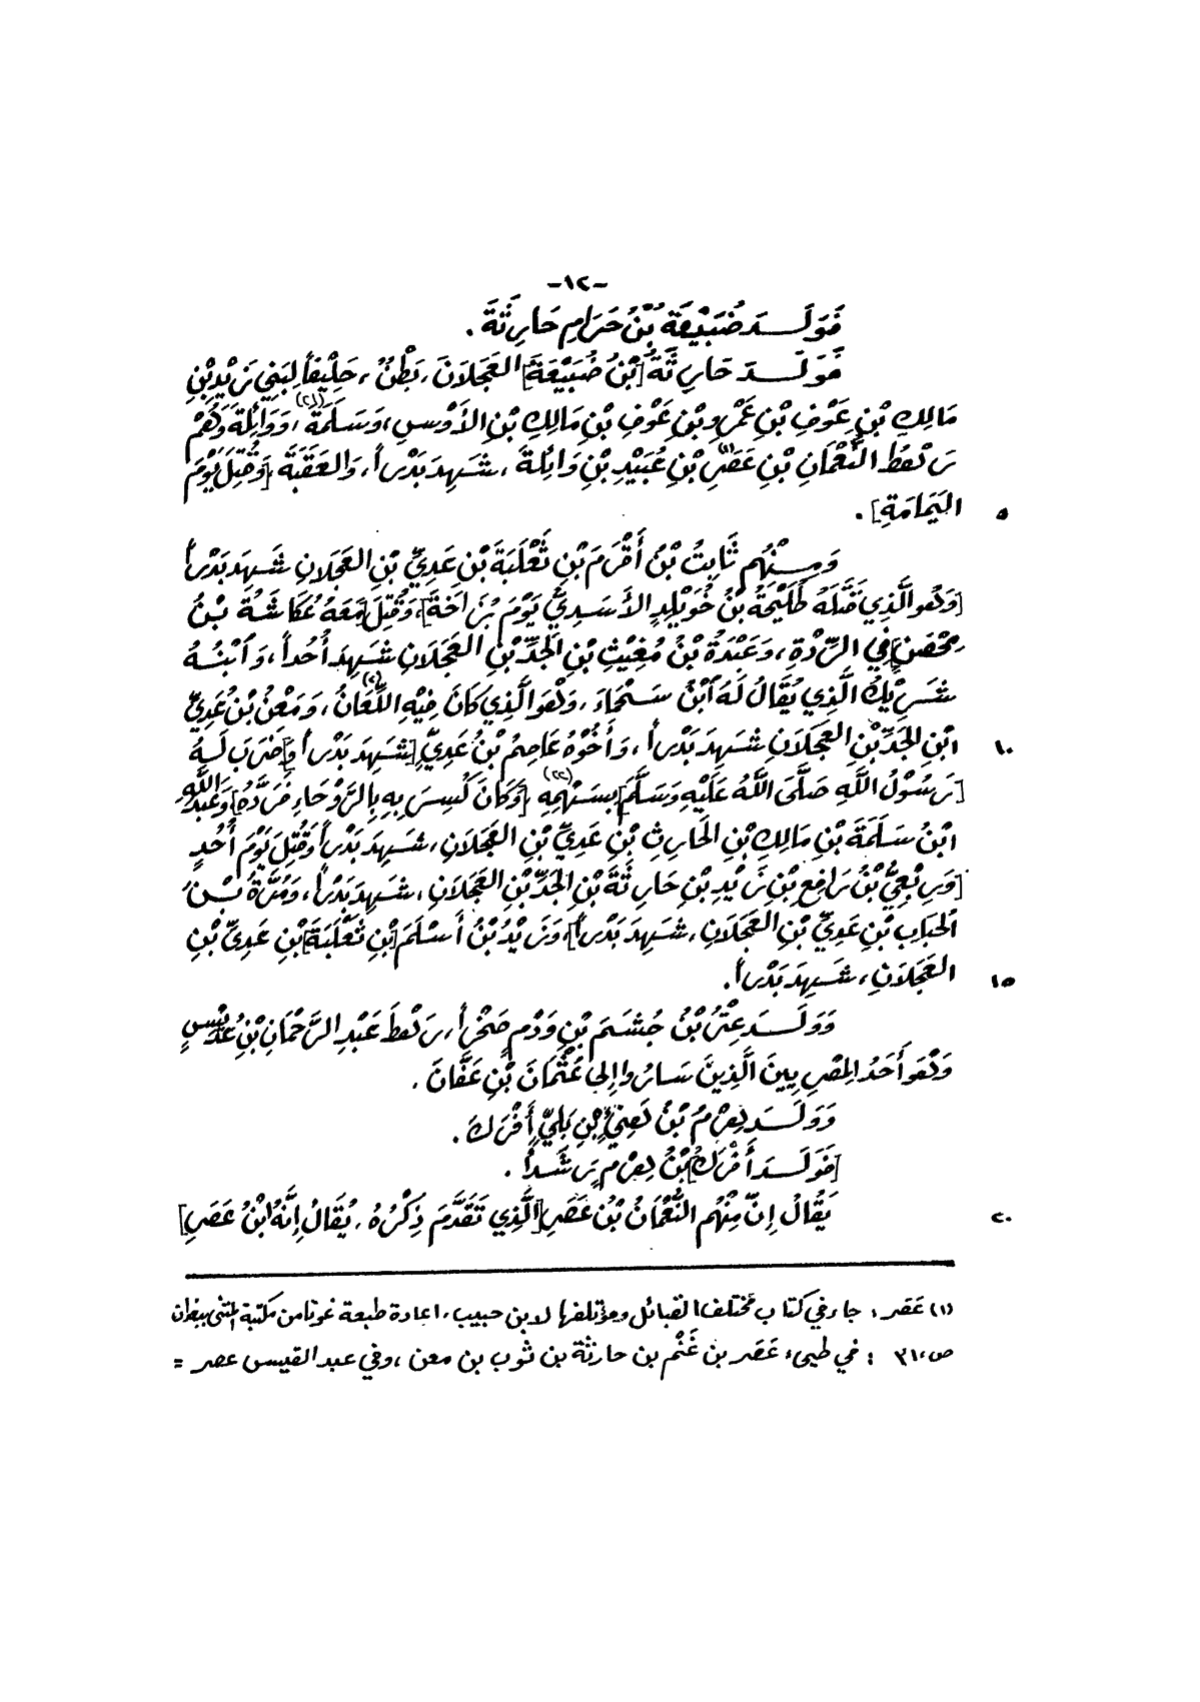 -١٢-
فَوَلَـدَ ضُبَيْعَة بْنُ حَرَامٍ حَارِثَةَ .
فَوَلَـدَ حَارِثَةُ [بْنُ ضُبَيْعَةَ] العَجَلانَ ، بَطْنٌ ، حَلِيْفاً لِبَنِي زَيْدِ بْنِ
مَالِكِ بْنِ عَوْفِ بْنِ عَمْرِو بْنِ عَوْفِ بْنِ مَالِكِ بْنِ الأَوْسِ ، وَسَلَمَةَ (٢١)، وَوَائِلَةَ وَهُمْ
رَهْطُ النُّعْمَانِ بْنِ عَصَرِ (١) بْنِ عُبَيْدِ بْنِ وَائِلَةَ ، شَهِدَ بَدْراً ، وَالعَقَبَةَ [وَقُتِلَ يَوْمَ
اليَمَامَةِ] . ٥
وَمِنْهُم ثَابِتُ بْنُ أَقْرَمَ بْنِ ثَعْلَبَةَ بْنِ عَدِيِّ بْنِ العَجَلانِ شَهِدَ بَدْراً
[وَهُوَ الَّذِي قَتَلَهُ طُلَيْحَةُ بْنُ خُوَيْلِدٍ الأَسَدِيُّ يَوْمَ بُزَاخَةَ]، وَقُتِلَ [مَعَهُ عُكَاشَةُ بْنُ
مِحْصَنٍ] فِي الرِّدَّةِ ، وَعَبْدَةُ بْنُ مُغِيْثِ بْنِ الجَدِّ بْنِ العَجَلانِ شَهِدَ أُحُداً ، وَابْنُهُ
شَرِيْكُ الَّذِي يُقَالُ لَهُ ابْنُ سَحْمَاءَ ، وَهُوَ الَّذِي كَانَ فِيْهِ اللِّعَانُ (٢)، وَمَعْنُ بْنُ عَدِيِّ
ابْنِ الجَدِّ بْنِ العَجَلانِ شَهِدَ بَدْراً ، وَأَخُوْهُ عَاصِمُ بْنُ عَدِيٍّ [شَهِدَ بَدْراً وَ] ضَرَبَ لَهُ ١٠
[رَسُوْلُ اللَّهِ صَلَّى اللَّهُ عَلَيْهِ وَسَلَّمَ] بِسَهْمِهِ (٢٢) [وَكَانَ كُسِرَ بِهِ بِالرَّوْحَاءِ فَرَدَّهُ] وَعَبْدُ اللَّهِ
ابْنُ سَلَمَةَ بْنِ مَالِكِ بْنِ الحَارِثِ بْنِ عَدِيِّ بْنِ العَجَلانِ ، شَهِدَ بَدْراً وَقُتِلَ يَوْمَ أُحُدٍ
[وَرِبْعِيُّ بْنُ رَافِعِ بْنِ زَيْدِ بْنِ حَارِثَةَ بْنِ الجَدِّ بْنِ العَجَلانِ ، شَهِدَ بَدْراً ، وَمُرَّةُ بْنُ
الحَبَابِ بْنِ عَدِيِّ بْنِ العَجَلانِ ، شَهِدَ بَدْراً] وَزَيْدُ بْنُ أَسْلَمَ [بْنِ ثَعْلَبَةَ] بْنِ عَدِيِّ بْنِ
العَجَلانِ ، شَهِدَ بَدْراً. ١٥
وَوَلَـدَ عِتْرُ بْنُ جُشَمَ بْنِ وَدْمٍ صَخْراً ، رَهْطَ عَبْدِ الرَّحْمَانِ بْنِ عُدَيْسٍ
وَهُوَ أَحَدُ المِصْرِيِينَ الَّذِينَ سَارُوا إِلَى عُثْمَانَ بْنِ عَفَّانَ .
وَوَلَـدَ هِرْمُ بْنُ هَنِيِّ بْنِ بَلِيٍّ أَفْرَكَ .
[فَوَلَـدَ أَفْرَكُ] بْنُ هِرْمٍ رَشَداً .
يَقُالُ إِنَّ مِنْهُم النُّعْمَانُ بْنُ عَصَرِ [الَّذِي تَقَدَّمَ ذِكْرُهُ ، يُقَالُ إِنَّهُ ابْنُ عَصَرِ] ٢٠
(١) عَصَر : جاء في كتاب مختلف القبائل ومؤتلفها لابن حبيب ، اعادة طبعة غوتا من مكتبة المثنى ببغداد
ص، ٣١ : في طيىء عَصَر بن غَنْم بن حارثة بن ثوب بن معن ، وفي عبد القيس عصر =